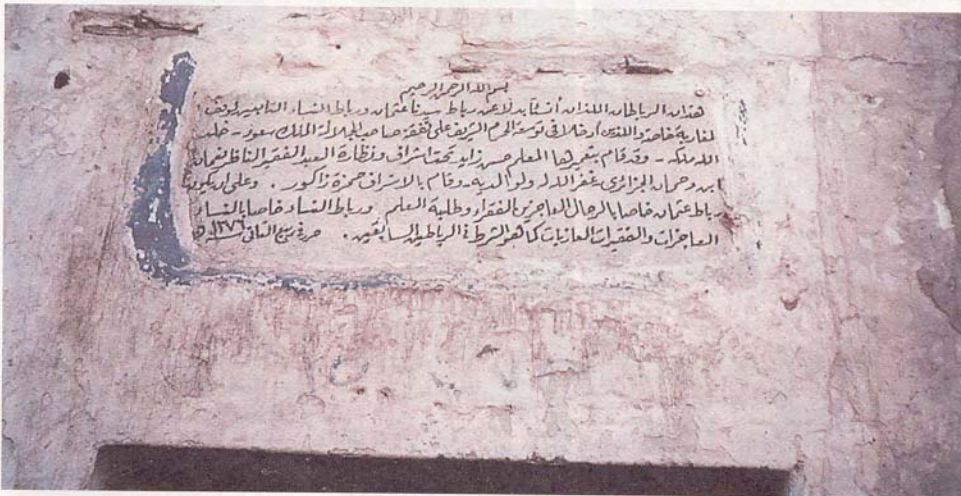 بسم الله الرحمن الرحيم
هذان الرباطان اللذان أنشئا بدلا عن رباط سيدنا عثمان ورباط النساء التابعين لوقف
المغاربة خاصة واللذين أدخلا فى توسعة الحرم الشريف على نفقة صاحب الجلالة الملك سعود - خلد
الله ملكه - وقد قام بتعميرها المعلم حسن زايد تحت اشراف ونظارة العبد الفقير الناظر نعمان
ابن دحمان الجزائرى غفر الله له ولوالديه - وقام بالاشراف حمزة زاكور . وعلى ان يكون
رباط عثمان خاصا بالرجال العاجزين الفقراء وطلبة العلم ورباط النساء خاصا بالنساء
العاجزات والفقيرات العازبات كما هو الشرط فى الرباطين السابقين . حرر فى ربيع الثانى